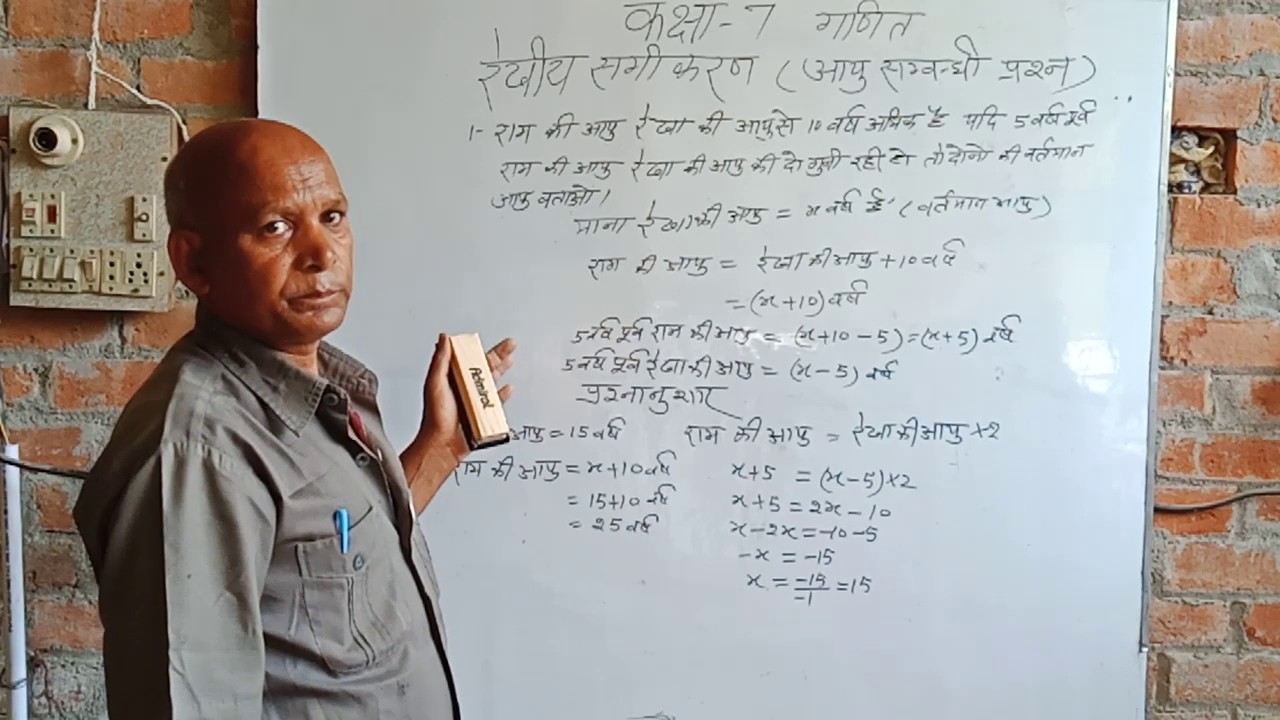 कक्षा-7 गणित
रेखीय समीकरण (आयु सम्बन्धी प्रश्न)
1- राम की आयु रेखा की आयु से 10 वर्ष अधिक है यदि 5 वर्ष पूर्व
राम की आयु रेखा की आयु की दो गुनी रही हो तो दोनो की वर्तमान
आयु बताओ।
माना रेखा की आयु = x वर्ष है (वर्तमान आयु)
राम की आयु = रेखा की आयु + 10 वर्ष
= (x+10) वर्ष
5 वर्ष पूर्व राम की आयु = (x+10-5) = (x+5) वर्ष
5 वर्ष पूर्व रेखा की आयु = (x-5) वर्ष
प्रश्नानुशार
राम की आयु = रेखा की आयु ×2
x+5 = (x-5)×2
x+5 = 2x-10
x-2x = -10-5
-x = -15
x = -15/-1 = 15
आयु = 15 वर्ष
राम की आयु = x+10 वर्ष
= 15+10 वर्ष
= 25 वर्ष
Admiral